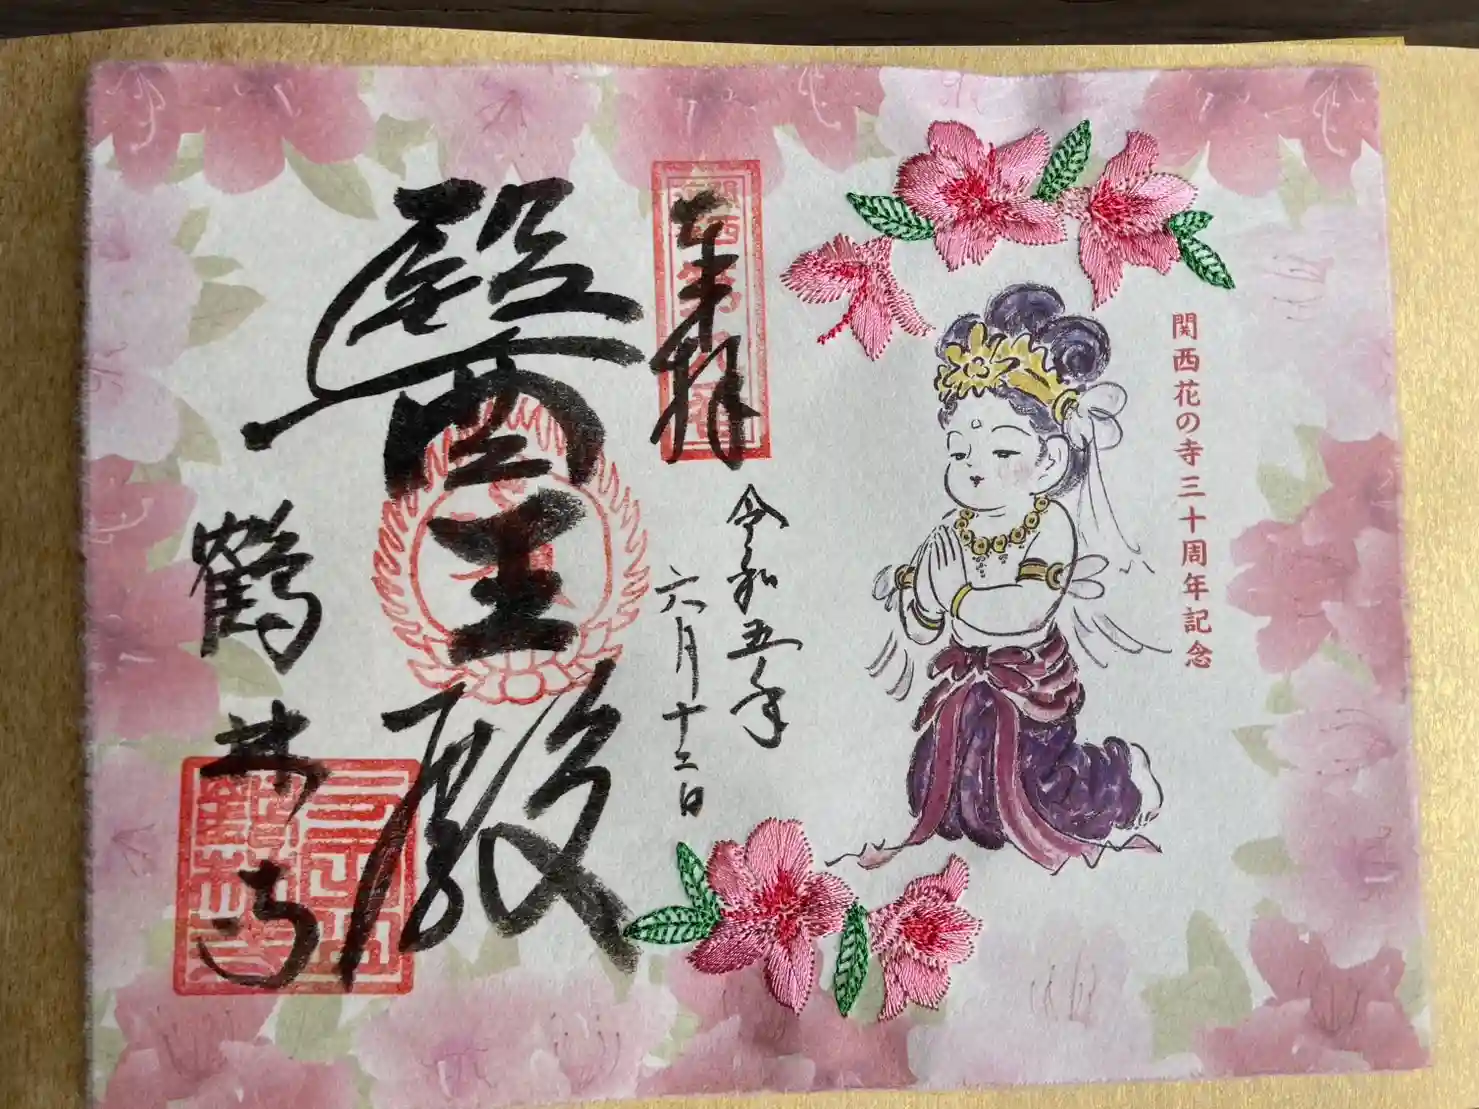 関西花の寺三十周年記念
奉拝
令和五年
六月十二日
醫王殿
鶴林寺